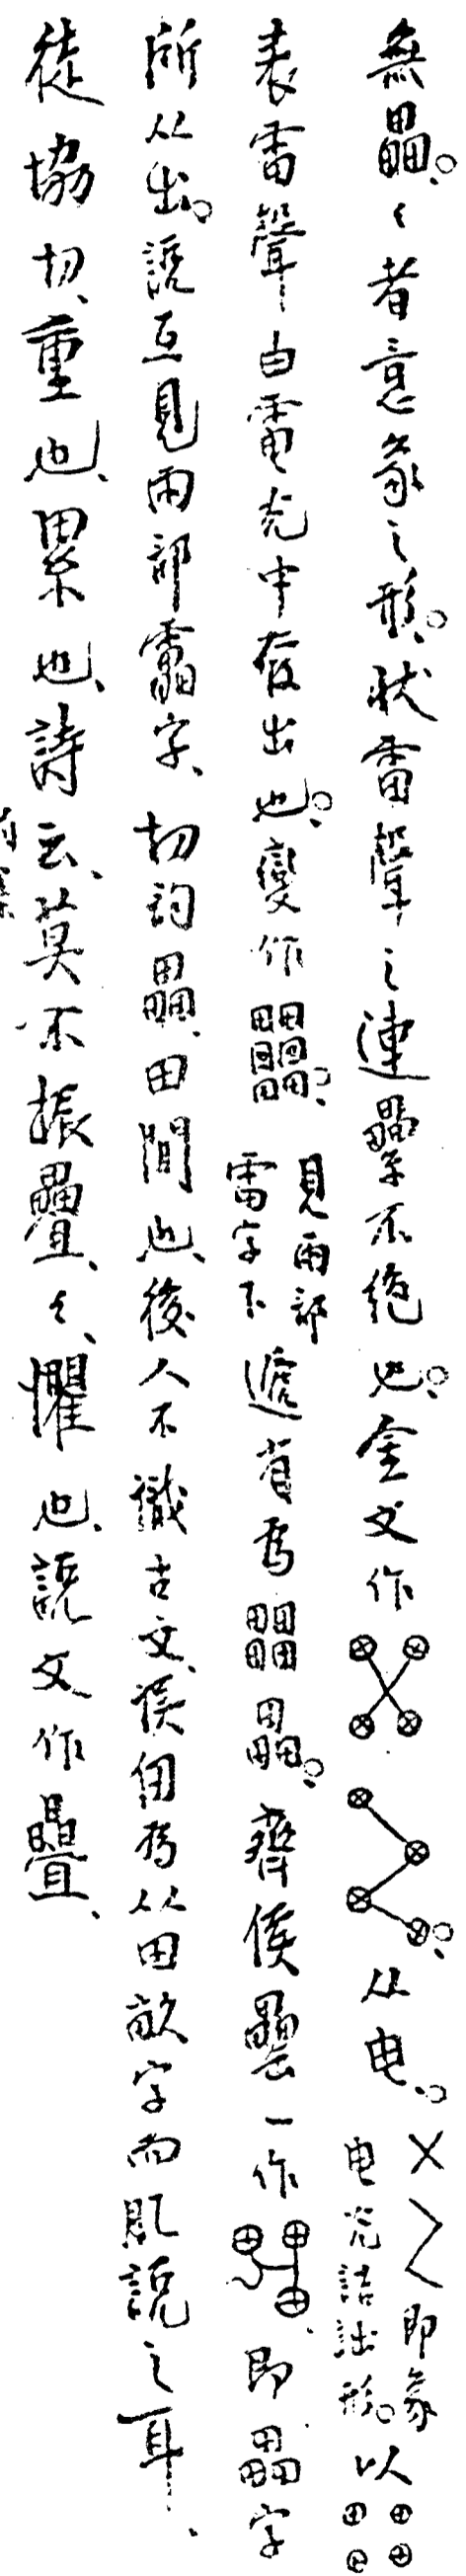 無畾。々者意象之形。狀雷聲之連纍不絶也。金文作 从电。电光詰詘形。即象以
表雷聲由電光中發出也。變作。見雨部雷字下遞省爲畾。齊侯罍一作、即畾字
所从出。說互見雨部靁字、切韵畾、田間也、後人不識古文、誤佀爲从田畝字而肊說之耳、
徒協切、重也、累也、詩云、莫不振疊、々、懼也、說文作疊、